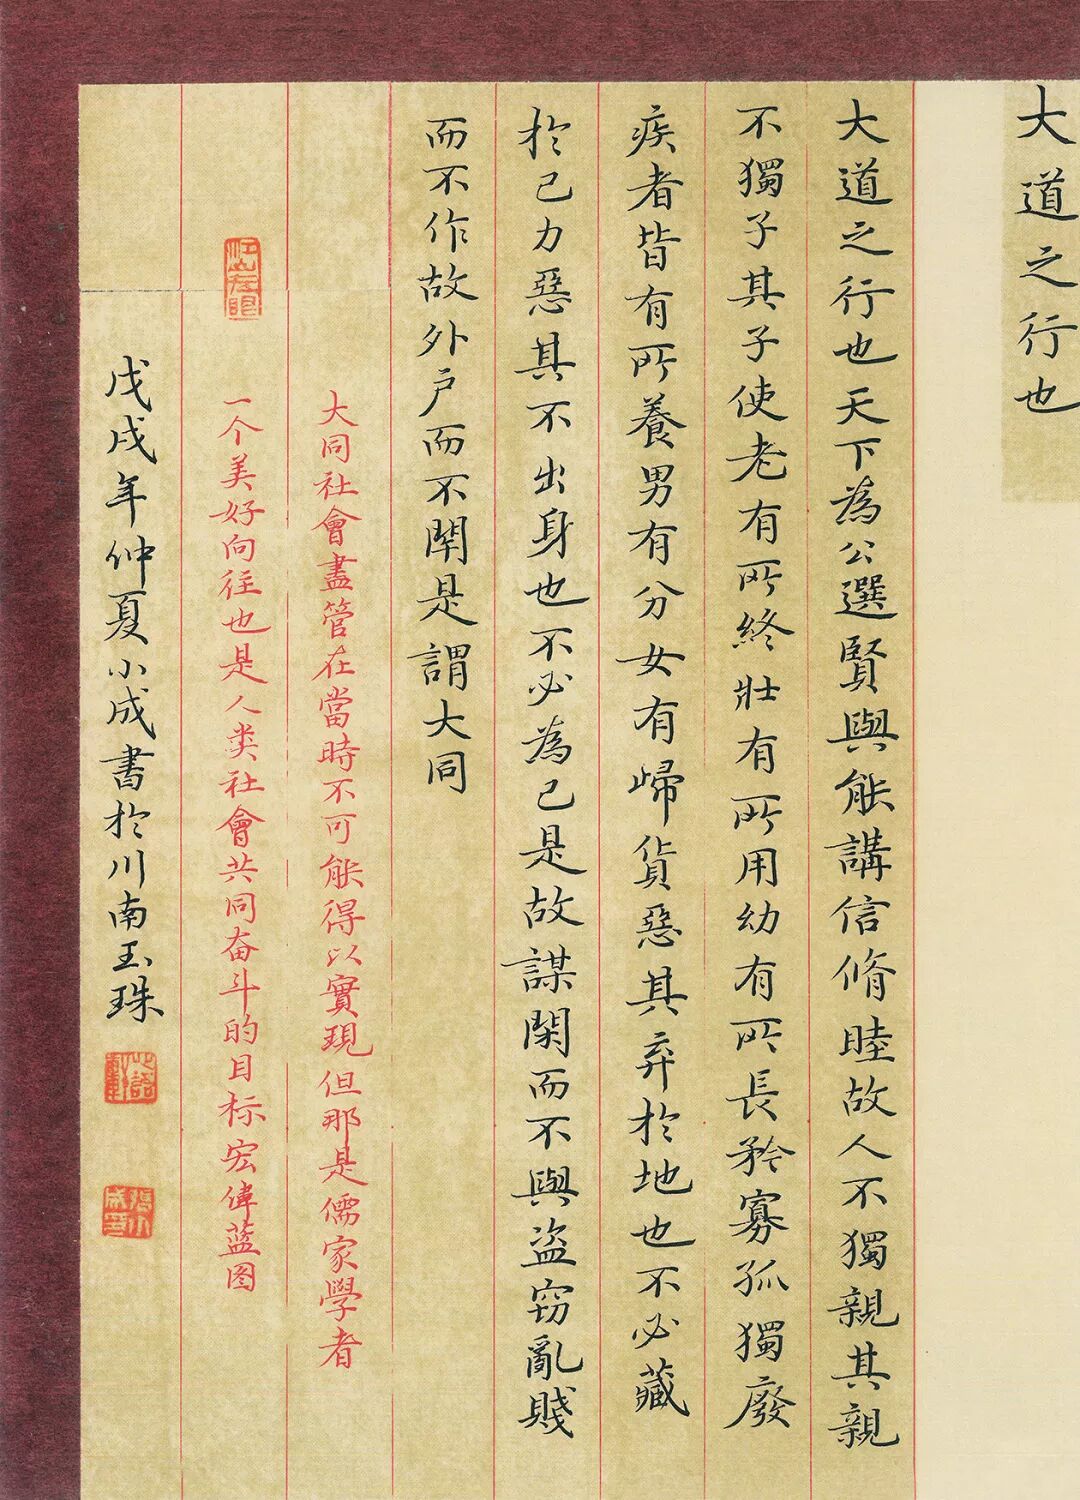 大道之行也
大道之行也天下為公選賢與能講信脩睦故人不獨親其親
不獨子其子使老有所終壯有所用幼有所長矜寡孤獨廢
疾者皆有所養男有分女有歸貨惡其弃於地也不必藏
於己力惡其不出身也不必為己是故謀閑而不與盜窃亂賤
而不作故外户而不閉是謂大同
大同社會盡管在當時不可能得以實現但那是儒家學者
一个美好向往也是人类社會共同奋斗的目标宏偉蓝图
戊戌年仲夏小成書於川南玉珠